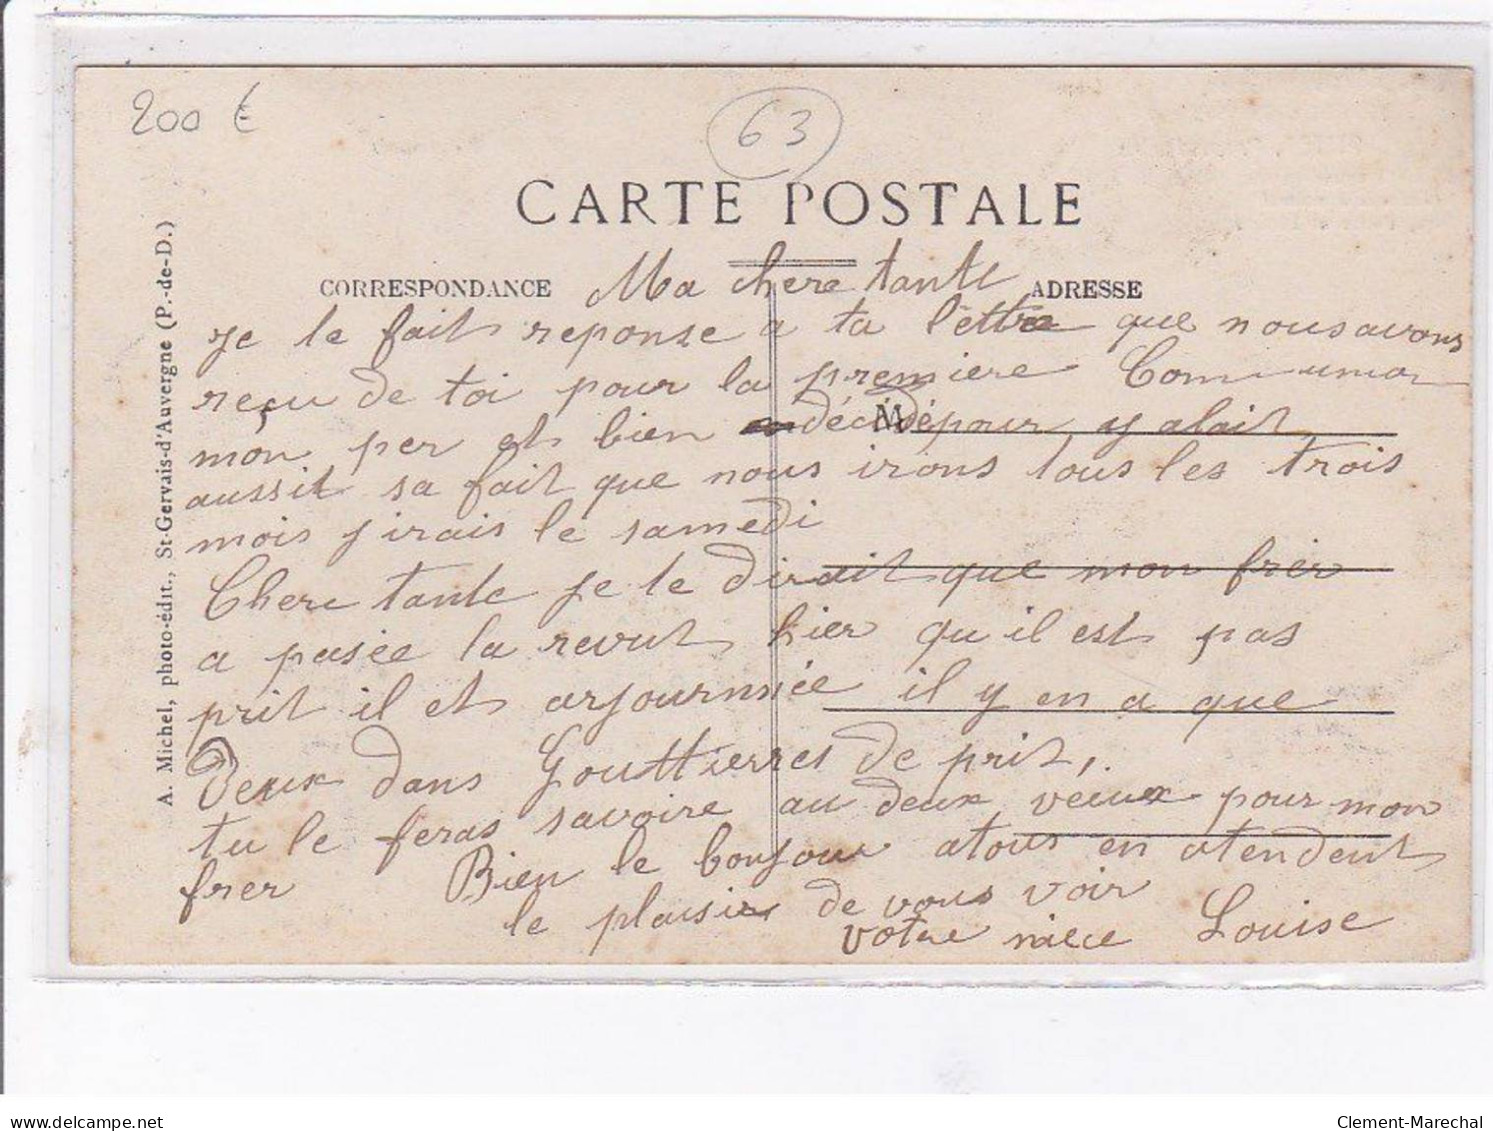 200 €
63
CARTE POSTALE
CORRESPONDANCE
ADRESSE
Ma chere tante
je te fait reponse a ta lettre que nous avons
reçu de toi pour la premiere Communion
mon per et bien décidé pour y alait
M
aussit sa fait que nous irons tous les trois
mois j irais le samedi
Chere tante je te dirait que mon frer
a pasée la revut hier qu il est pas
prit il et arjournnée il y en a que
Deux dans Gouttierres de prit,
tu le feras savoire au deux veiux pour mon
frer Bien le bonjour atous en atendent
le plaisir de vous voir
votre nièce Louise
A. Michel, photo-édit., St-Gervais-d'Auvergne (P.-de-D.)
www.delcampe.net
Clement-Marechal